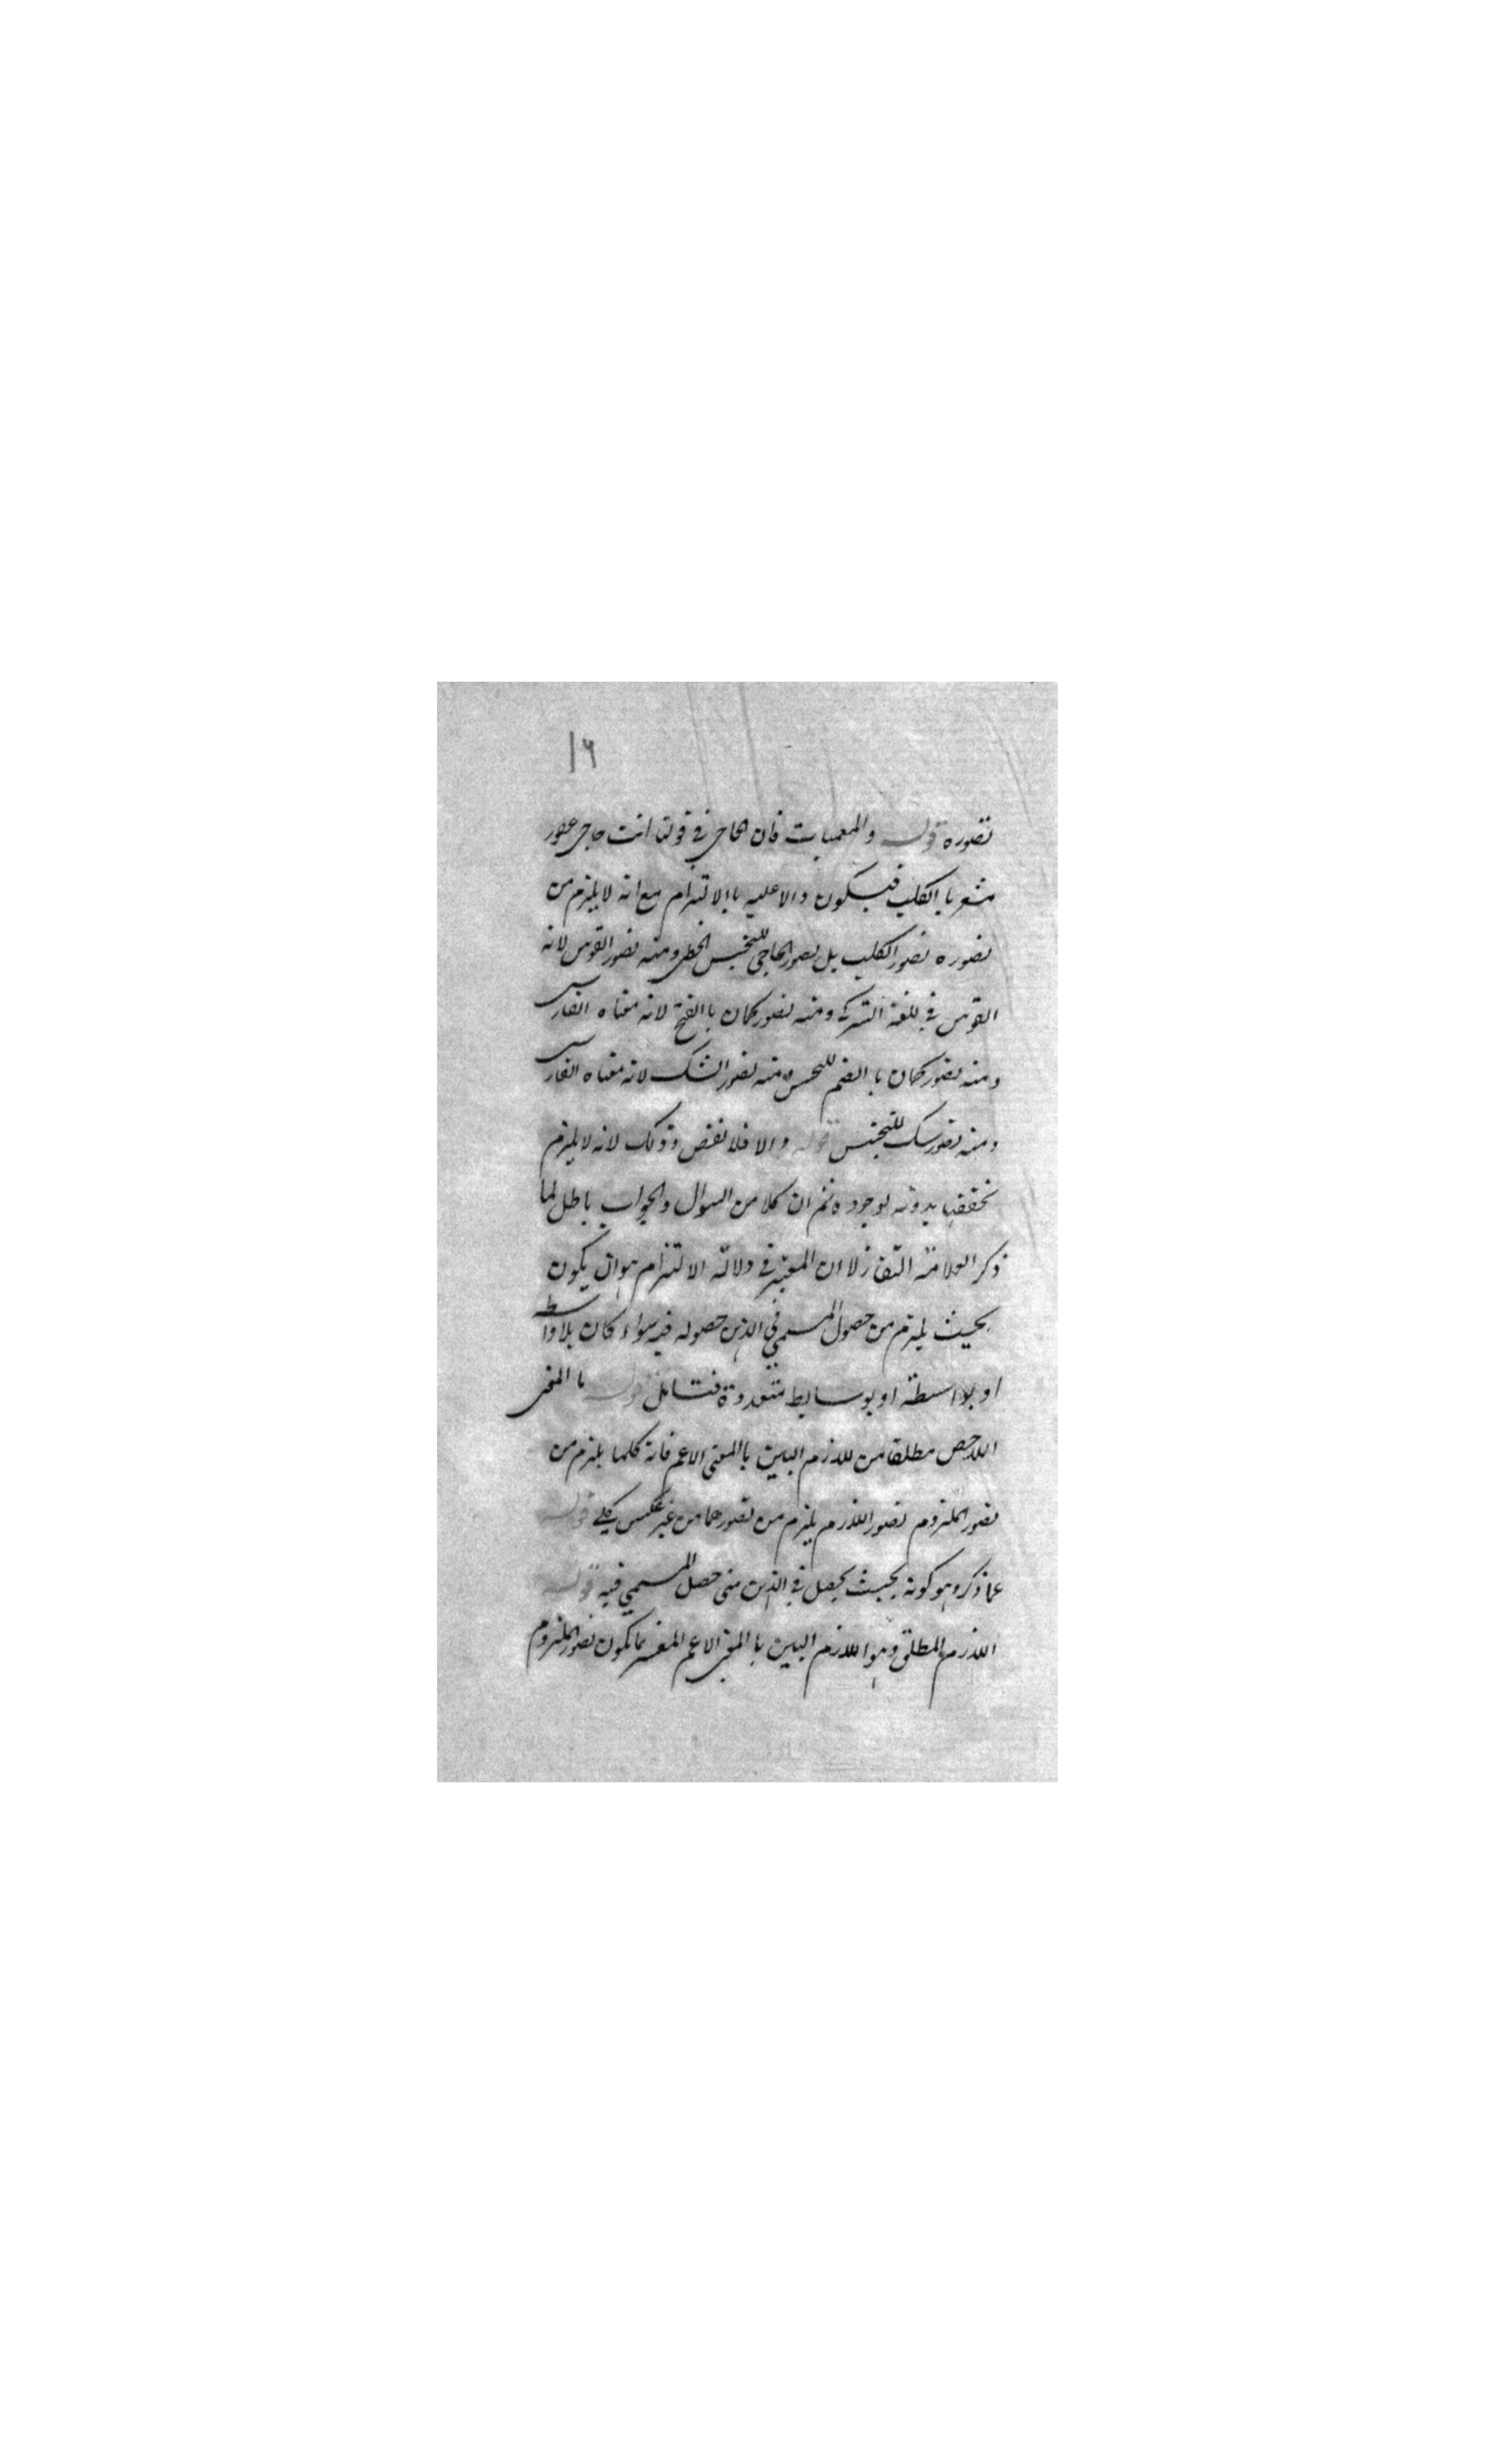 ١٦
تصوره قوله والمعميات فان الحاجى فى قولنا انت حاجى عفور
مشعر با الكلب فيكون دالا عليه باالالتزام مع انه لا يلزم من
تصوره تصور الكلب بل تصور الحاجى للتجنيس الخطى ومنه تصور القوس لانه
القوس فى اللغة التركى ومنه تصور كمان با الفتح لانه معناه الفارسى
ومنه تصور كمان با الضم للتجنيس ومنه تصور الشك لانه معناه الفارسى
ومنه تصور سك للتجنيس قوله والا فلا نقض وذلك لانه لا يلزم
تحققها بدونه لوجوده ثم ان كلا من السوال والجواب باطل لما
ذكر العلامة ان المعتبر فى دلالة الالتزام هو ان يكون
بحيث يلزم من حصول المسمى فى الذهن حصوله فيه سواء كان بلا واسطه
او بواسطة او بوسايط متعددة فتامل قوله با المعنى
الاخص مطلقا من اللازم البين باالمعنى الاعم فانه كلما يلزم من
تصور الملزوم تصور اللازم يلزم من تصورهما من غير عكس كلى قوله
عما ذكر وهو كونه بحيث يحصل فى الذهن متى حصل المسمى فيه قوله
اللازم المطلق وهو اللازم البين با المعنى الاعم المفسر بما يكون تصور الملزوم